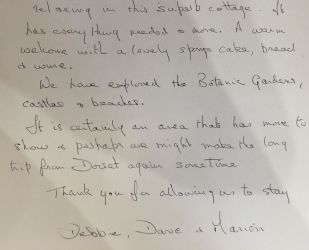 relaxing in this superb cottage. It
has everything needed & more. A warm
welcome with a lovely sponge cake, bread
& wine.
We have explored the Botanic Gardens,
castles & beaches.
It is certainly an area that has more to
show & perhaps we might make the long
trip from Dorset again sometime
Thank you for allowing us to stay
Debbie, Dave & Marion